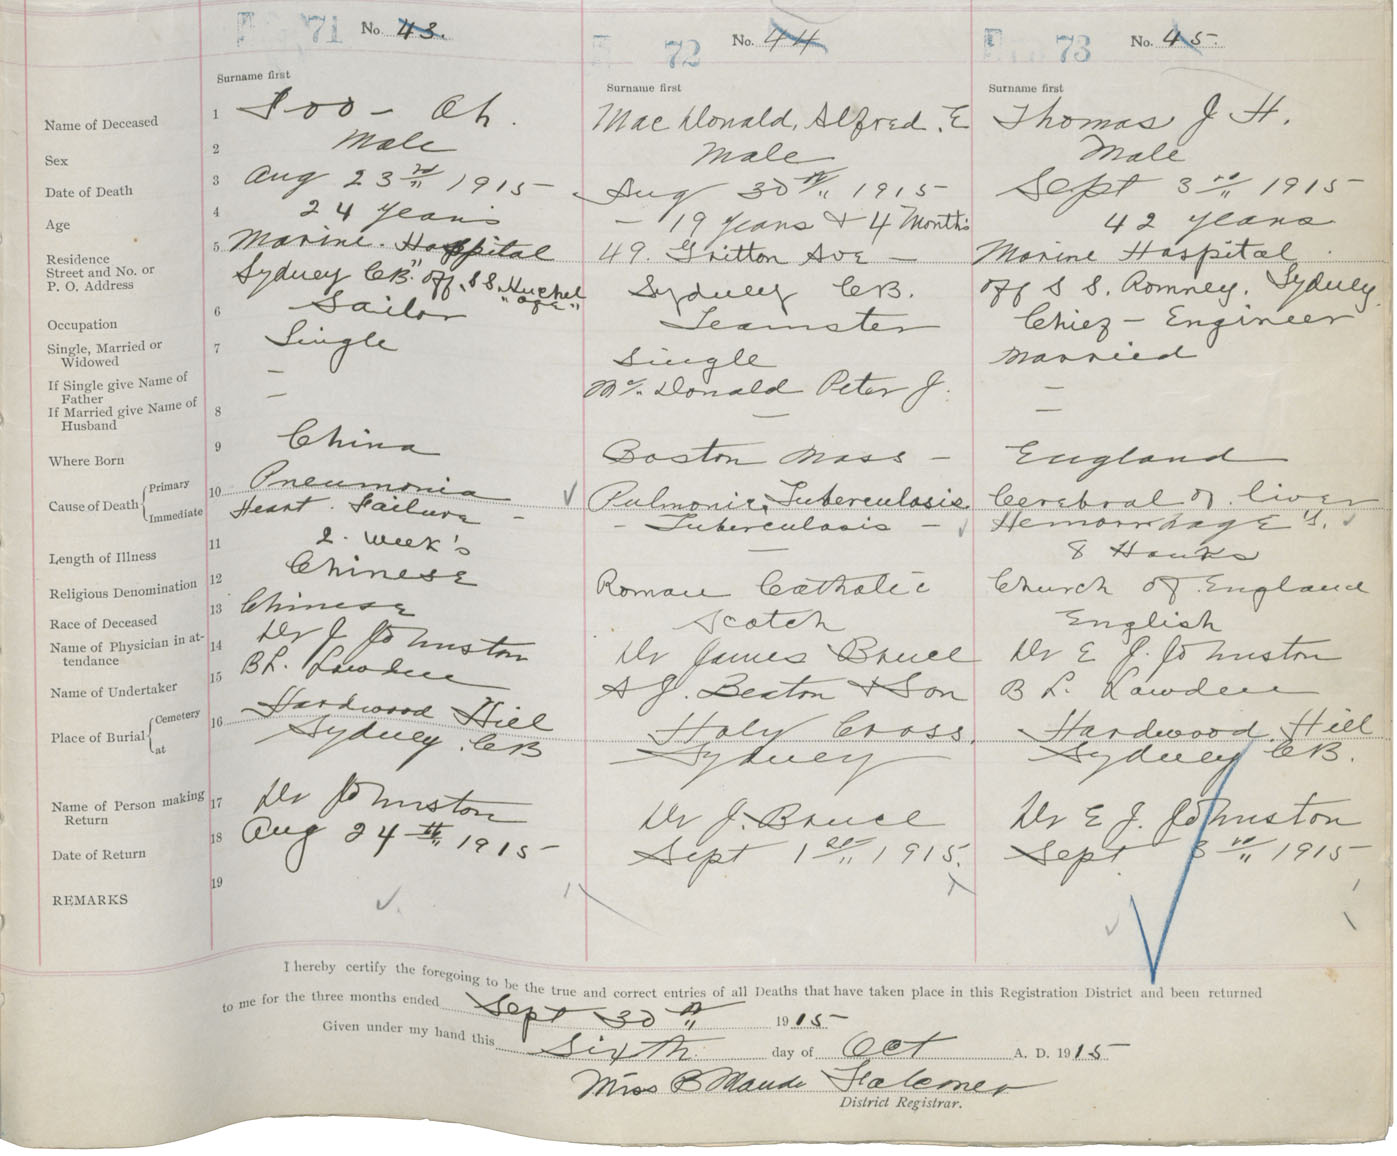 71 No. 43.
72 No. 44
73 No. 45.
Surname first
Surname first
Surname first
Name of Deceased 1 Soo - Ah. Mac Donald, Alfred. E Thomas J H.
Sex 2 Male Male Male
Date of Death 3 Aug 23rd 1915 Aug 30th 1915 Sept 3rd 1915
Age 4 24 years 19 years & 4 Months 42 years
Residence 5 Marine. Hospital 49. Gritton Ave Marine Hospital
Street and No. or
P. O. Address Sydney CB. off. S S. Sydney CB. off S S. Romney. Sydney.
Occupation 6 Sailor Teamster Chief - Engineer
Single, Married or
Widowed 7 Single Single Married
If Single give Name of
Father - Mc. Donald Peter J. -
If Married give Name of
Husband 8 - - -
Where Born 9 China Boston Mass - England
Cause of Death Primary 10 Pneumonia Pulmonic. Tuberculosis Cerebral or liver
Immediate Heart. Failure - - Tuberculosis - Hemorrhage's.
Length of Illness 11 2. week's - 8 Hours
Religious Denomination 12 Chinese Roman Catholic Church of England
Race of Deceased 13 Chinese Scotch English
Name of Physician in at-
tendance 14 Dr J Johnston Dr James Bruce Dr E J. Johnston
Name of Undertaker 15 B L. Lowden A J. Beaton & Son B L. Lowden
Place of Burial Cemetery 16 Hardwood Hill Holy Cross. Hardwood Hill
at Sydney. CB Sydney Sydney CB.
Name of Person making
Return 17 Dr Johnston Dr J. Bruce Dr E J. Johnston
Date of Return 18 Aug 24th 1915 Sept 1st 1915. Sept 3rd 1915
REMARKS 19
I hereby certify the foregoing to be the true and correct entries of all Deaths that have taken place in this Registration District and been returned
to me for the three months ended Sept 30th 1915
Given under my hand this Sixth day of Oct A. D. 1915
Miss B Maude Falconer
District Registrar.